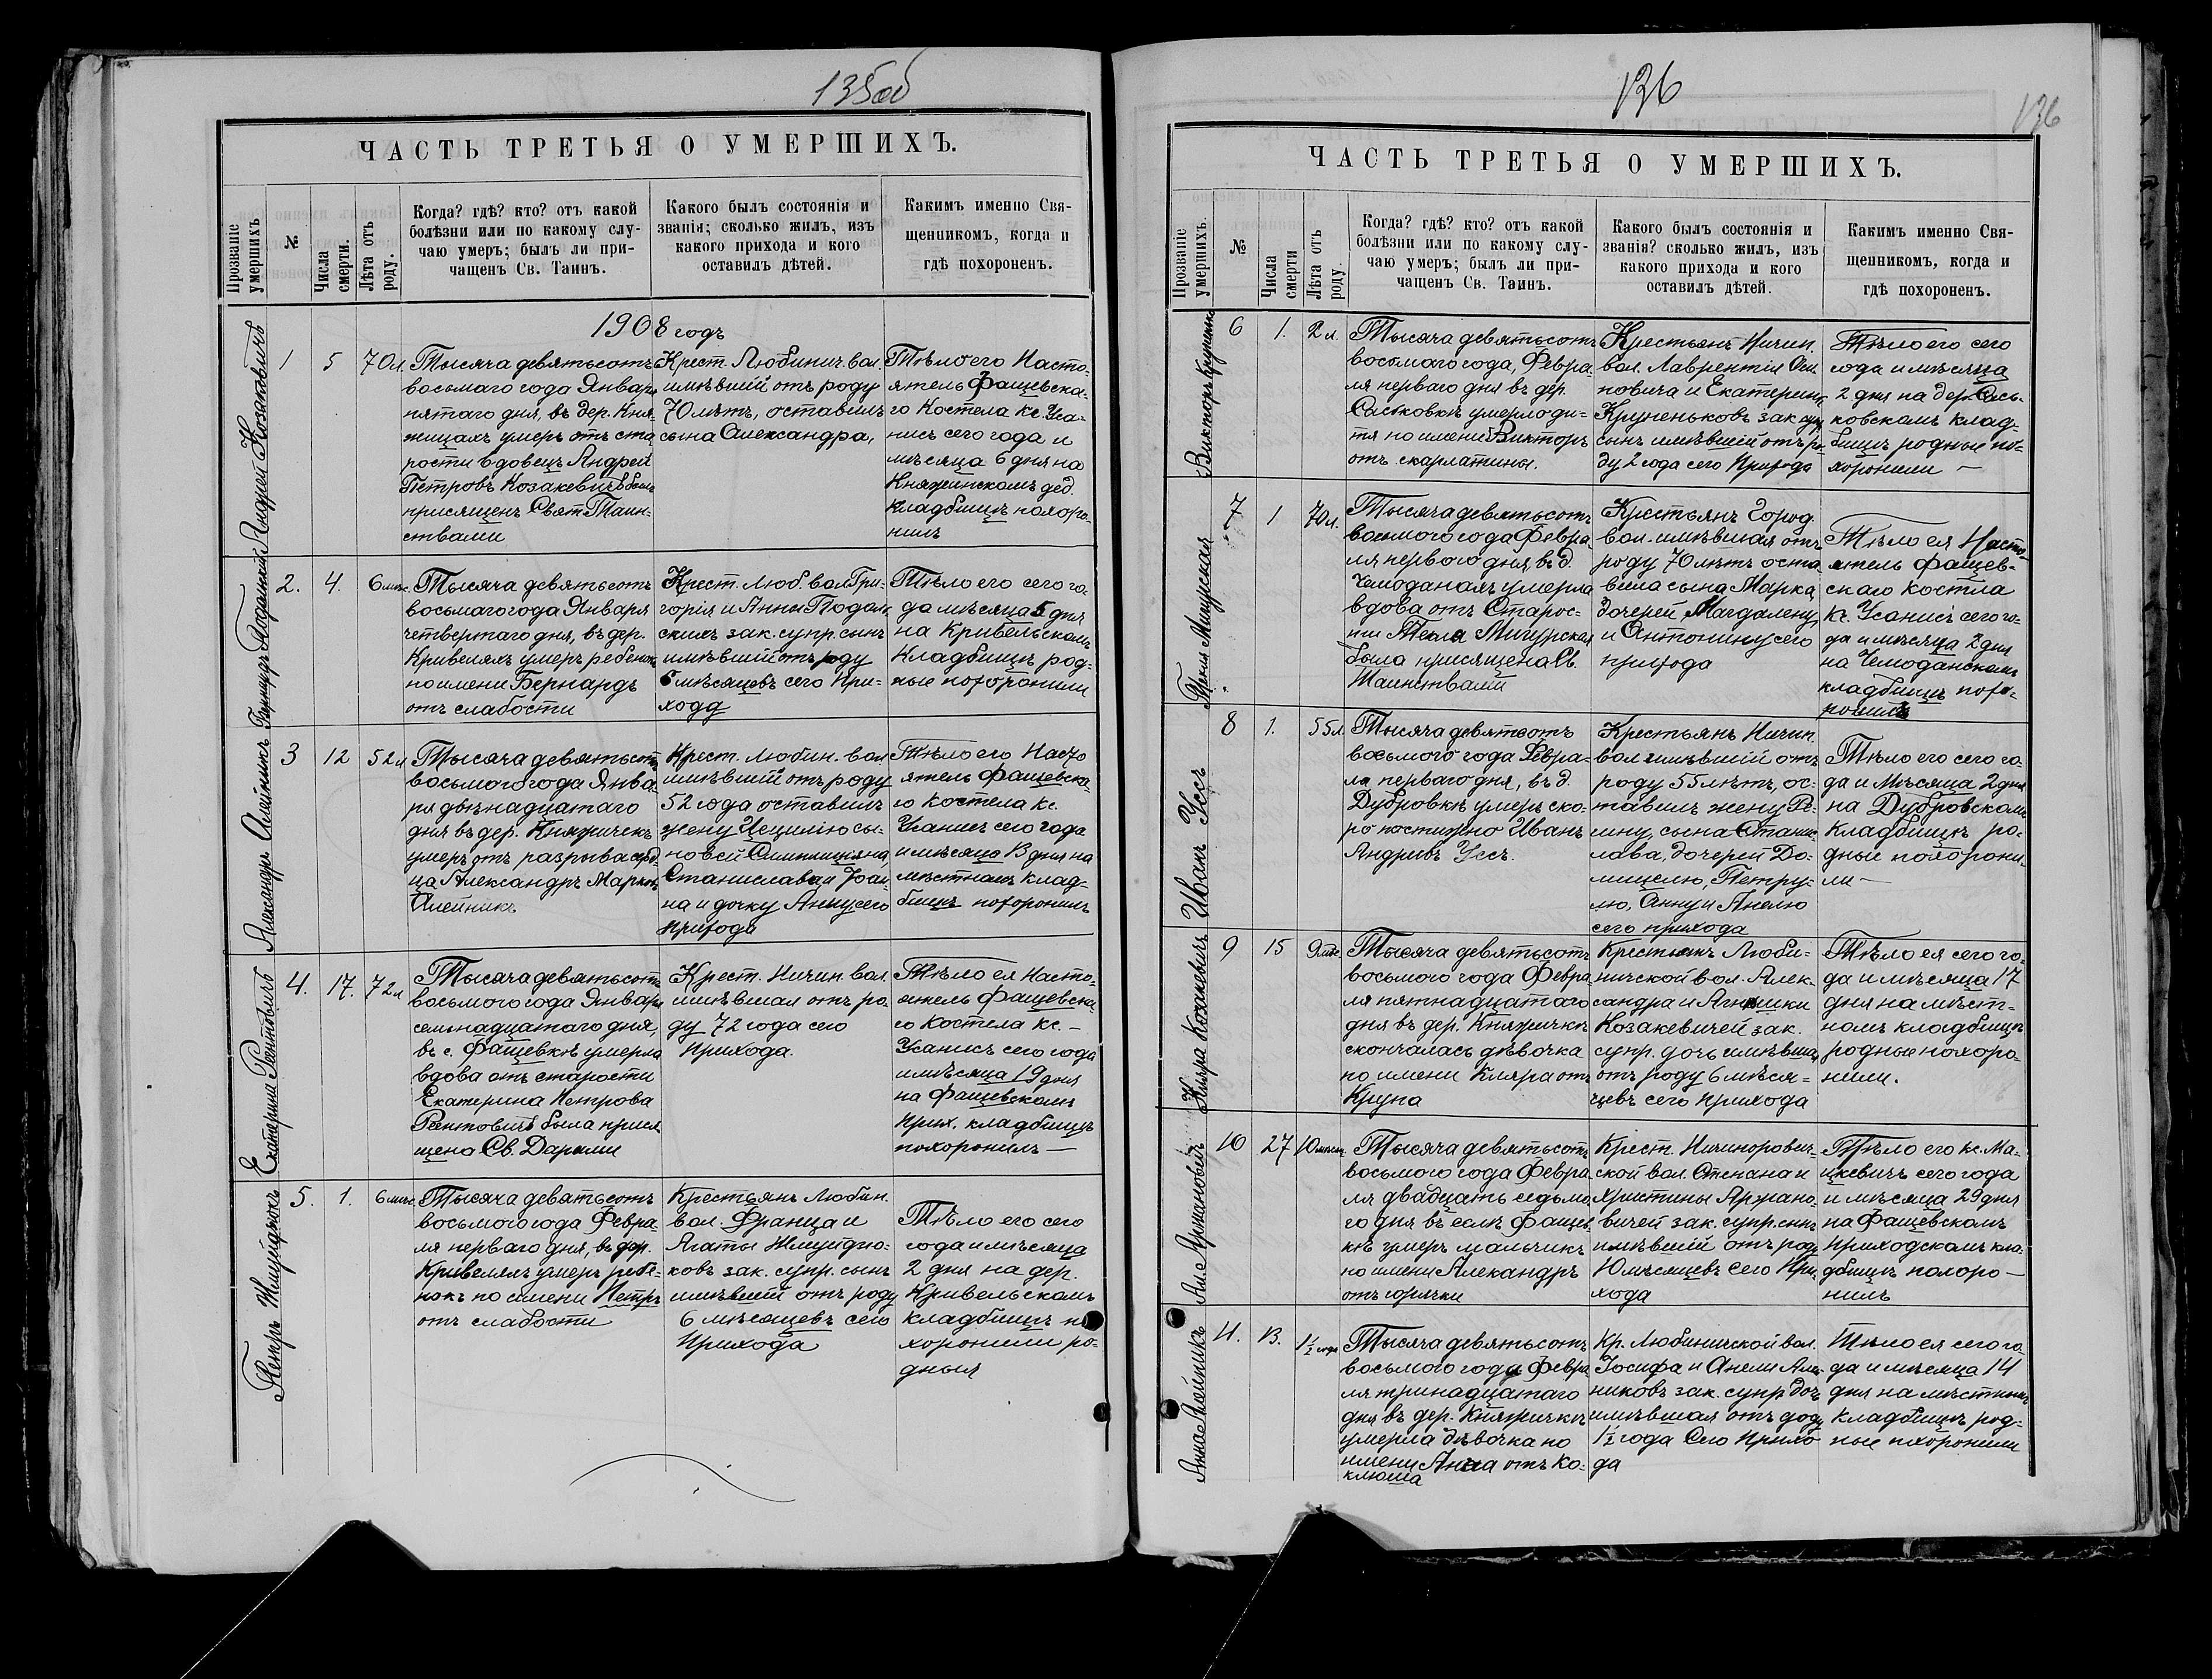 135об
ЧАСТЬ ТРЕТЬЯ О УМЕРШИХЪ.
Прозваніе умершихъ
№
Числа смерти.
Лѣта отъ роду.
Когда? гдѣ? кто? отъ какой
болѣзни или по какому слу-
чаю умеръ; былъ ли при-
чащенъ Св. Таинъ.
Какого былъ состоянія и
званія; сколько жилъ, изъ
какого прихода и кого
оставилъ дѣтей.
Какимъ именно Свя-
щенникомъ, когда и
гдѣ похороненъ.
1908 годъ
Андрей Козакевичъ
1
5
70 л.
Тысяча девятьсотъ
восьмаго года Января
пятаго дня, въ дер. Кня-
жицахъ умеръ отъ ста
рости вдовецъ Андрей
Петровъ Козакевичъ былъ
присященъ Свят. Таин-
ствами
Крест. Любинич. вол.
имѣвшій отъ роду
70 лѣтъ, оставилъ
сына Александра,
Тѣло его Насто-
ятель Фащевска-
го Костела Кс. Уса-
нисъ сего года и
мѣсяца 6 дня на
Княжинскомъ
Кладбищѣ похоро-
нилъ
Бернардъ
2.
4.
6 мѣс.
Тысяча девятьсотъ
восьмаго года Января
четвертаго дня, въ дер.
Кривеляхъ умеръ ребенокъ
по имени Бернардъ
отъ слабости
Крест. Люб. вол. Гри-
горія и Анны
скихъ зак. супр. сынъ
имѣвшій отъ роду
6 мѣсяцевъ сего При-
хода
Тѣло его сего го-
да мѣсяца 5 дня
на Кривельскомъ
Кладбищѣ род-
ные похоронили
Александръ Алейникъ
3
12
52 л
Тысяча девятьсотъ
восьмого года Янва
ря двѣнадцатаго
дня въ дер. Княжичкѣ
умеръ отъ разрыва серд
ца Александръ Марковъ
Алейникъ
Крест. Любин. вол
имѣвшій отъ роду
52 года оставилъ
жену Цецилію сы-
новей
Станислава и Іоан-
на и дочку Анну сего
прихода
Тѣло его Насто
ятель Фащевска-
го костела кс.
Усанисъ сего года
и мѣсяца 13 дня на
мѣстномъ клад-
бищѣ похоронилъ
Екатерина Рентовичъ
4.
17.
72 л
Тысяча девятьсотъ
восьмого года Января
семнадцатаго дня,
въ с. Фащевкѣ умерла
вдова отъ старости
Екатерина Петрова
Рентовичъ была прися
щена Св. Дарами
Крест. Ничип. вол.
имѣвшая отъ ро-
ду 72 года сего
Прихода.
Тѣло ея Насто-
ятель Фащевска
го Костела кс. -
Усанисъ сего года
и мѣсяца 19 дня
на Фащевскомъ
Прих. кладбищѣ
похоронилъ —
Петръ Жмуйдзюкъ
5.
1.
6 мѣс.
Тысяча девятьсотъ
восьмого года Февра
ля перваго дня, въ дер.
Кривеляхъ умеръ ребе-
нокъ по имени Петръ
отъ слабости
Крестьянъ Любин.
вол. Франца и
Агаты
ковъ зак. супр. сынъ
имѣвшій отъ роду
6 мѣсяцевъ сего
Прихода
Тѣло его сего
года и мѣсяца
2 дня на дер.
Кривельскомъ
кладбищѣ по
хоронили ро-
дныя
136
136
ЧАСТЬ ТРЕТЬЯ О УМЕРШИХЪ.
Прозваніе умершихъ.
№
Числа смерти
Лѣта отъ роду
Когда? гдѣ? кто? отъ какой
болѣзни или по какому слу-
чаю умеръ; былъ ли при-
чащенъ Св. Таинъ.
Какого былъ состоянія и
званія? сколько жилъ, изъ
какого прихода и кого
оставилъ дѣтей.
Какимъ именно Свя-
щенникомъ, когда и
гдѣ похороненъ.
Викторъ
6
1.
2 л.
Тысяча девятьсотъ
восьмаго года, Февра-
ля перваго дня въ дер.
Саськовкѣ умерло ди-
тя по имени Викторъ
отъ скарлатины.
Крестьянъ Ничип.
вол. Лаврентія
и Екатерины
зак. супр
сынъ имѣвшій отъ ро
ду 2 года сего Прихода
Тѣло его сего
года и мѣсяца
2 дня на дер. Сась-
ковскомъ клад-
бищѣ родные по-
хоронили —
Текля Мигурская
7
1
70 л.
Тысяча девятьсотъ
восьмого года Февра
ля первого дня въ д.
Чемоданахъ умерла
вдова отъ Старос-
ти Текля Мигурская
была присящена Св.
Таинствами
Крестьянъ Город.
вол. имѣвшая отъ
роду 70 лѣтъ оста
вила сына Марка
дочерей Магдалену
и Антонину сего
прихода
Тѣло ея Насто-
ятель Фащев-
скаго костла
Кс. Усанисъ сего го-
да и мѣсяца 2 дня
на Чемоданскомъ
кладбищѣ похо-
ронилъ
Иванъ Уссъ
8
1.
55 л
Тысяча девятьсотъ
восьмого года Февра-
ля перваго дня, въ д.
Дубровкѣ умеръ ско-
ро постижно Иванъ
Андреевъ Уссъ.
Крестьянъ Ничип.
вол имѣвшій отъ
роду 55 лѣтъ, ос-
тавилъ жену Ре-
гину, сына Станис
лава, дочерей До-
мицелю, Петру-
лю, Анну и Анелю
сего прихода
Тѣло его сего го-
да и Мѣсяца 2 дня
на Дубровскомъ
кладбищѣ ро-
дные похорони-
ли —
Кляра Козакевичъ
9
15
Тысяча девятьсотъ
восьмого года Февра
ля пятнадцатаго
дня въ дер. Княжичкѣ
скончалась дѣвочка
по имени Кляра отъ
Крупа
Крестьянъ Люби-
ничской вол. Алек-
сандра и Агнешки
Козакевичей зак.
супр. дочь имѣвшая
отъ роду 6 мѣся-
цевъ сего прихода
Тѣло ея сего го-
да и мѣсяца 17
дня на мѣст-
номъ кладбищѣ
родные похоро-
нили.
10
27
10 мѣсяц.
Тысяча девятьсотъ
восьмого года Февра
ля двадцать седьма
го дня въ селѣ Фащев
кѣ умеръ мальчикъ
по имени Александръ
отъ горячки
Крест. Ничипорович-
ской вол. Степана и
Христины Аржано-
вичей зак. супр. сынъ
имѣвшій отъ роду
10 мѣсяцевъ сего При
хода
Тѣло его кс. Ма-
цкевичъ сего года
и мѣсяца 29 дня
на Фащевскомъ
приходскомъ кла-
дбищѣ похоро—
нилъ
Анна Алейникъ
11.
13.
1½ года
Тысяча девятьсотъ
восьмого года Февра
ля тринадцатаго
дня въ дер. Княжичкѣ
умерла дѣвочка по
имени Анна отъ ко-
клюша
Кр. Любиничской вол.
Іосифа и Анели Алей-
никовъ зак. супр дочь
имѣвшая отъ роду
1½ года Сего прихо
да
Тѣло ея сего го-
да и мѣсяца 14
дня на мѣстномъ
кладбищѣ род-
ные похоронили